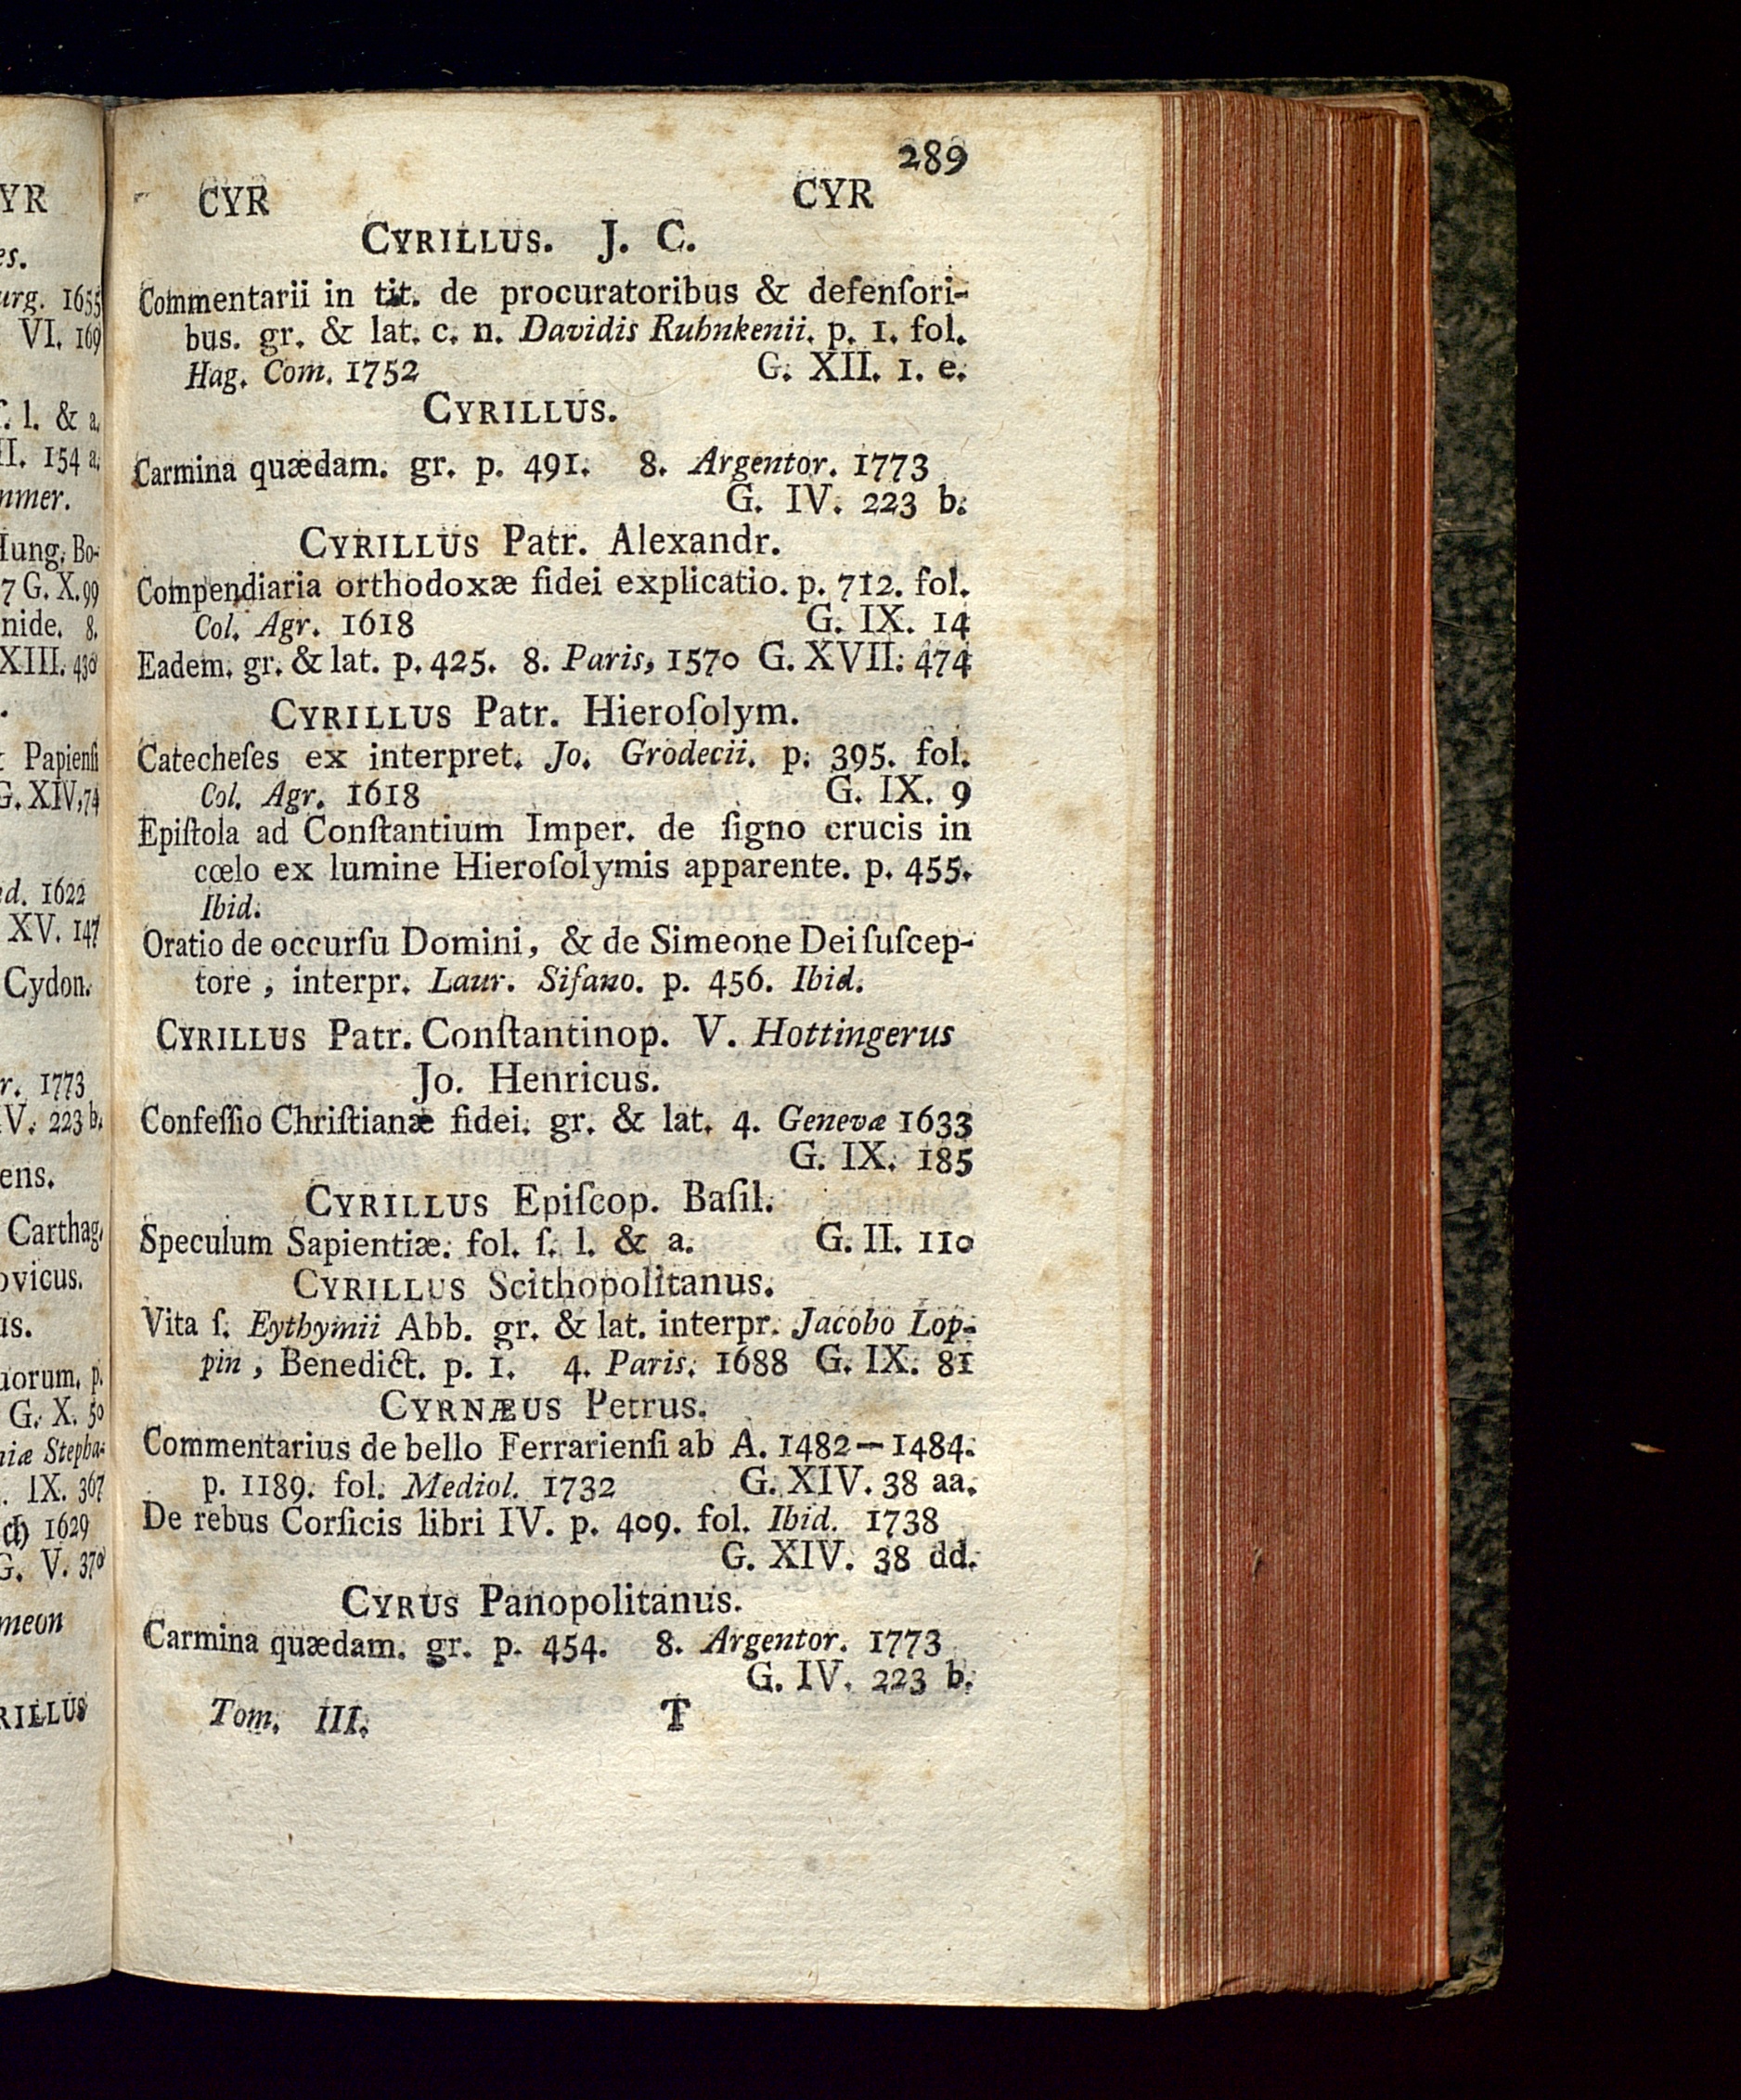 YR
es.
urg. 1655
VI. 169
ſ. l. & a.
II. 154 a.
mmer.
Hung. Bo-
7 G. X. 99
nide. 8.
XIII. 430
Papienſi
G. XIV. 74
d. 1622
XV. 147
Cydon.
r. 1773
IV. 223 b.
ens.
Carthag.
ovicus.
us.
uorum. p.
G. X. 50
niæ Stepha-
. IX. 367
ch 1629
G. V. 370
meon
RILLUS
289
CYR CYR
CYRILLUS. J. C.
Commentarii in tit. de procuratoribus & defenſori-
bus. gr. & lat. c. n. Davidis Ruhnkenii. p. 1. fol.
Hag. Com. 1752 G. XII. 1. e.
CYRILLUS.
Carmina quædam. gr. p. 491. 8. Argentor. 1773
G. IV. 223 b.
CYRILLUS Patr. Alexandr.
Compendiaria orthodoxæ fidei explicatio. p. 712. fol.
Col. Agr. 1618 G. IX. 14
Eadem. gr. & lat. p. 425. 8. Paris, 1570 G. XVII. 474
CYRILLUS Patr. Hieroſolym.
Catecheſes ex interpret. Jo. Grodecii. p. 395. fol.
Col. Agr. 1618 G. IX. 9
Epiſtola ad Conſtantium Imper. de ſigno crucis in
cœlo ex lumine Hieroſolymis apparente. p. 455.
Ibid.
Oratio de occurſu Domini, & de Simeone Dei ſuſcep-
tore, interpr. Laur. Sifano. p. 456. Ibid.
CYRILLUS Patr. Conſtantinop. V. Hottingerus
Jo. Henricus.
Confeſſio Chriſtianæ fidei. gr. & lat. 4. Genevæ 1633
G. IX. 185
CYRILLUS Epiſcop. Baſil.
Speculum Sapientiæ. fol. ſ. l. & a. G. II. 110
CYRILLUS Scithopolitanus.
Vita ſ. Eythymii Abb. gr. & lat. interpr. Jacobo Lop-
pin, Benedict. p. 1. 4. Paris. 1688 G. IX. 81
CYRNÆUS Petrus.
Commentarius de bello Ferrarienſi ab A. 1482—1484.
p. 1189. fol. Mediol. 1732 G. XIV. 38 aa.
De rebus Corſicis libri IV. p. 409. fol. Ibid. 1738
G. XIV. 38 dd.
CYRUS Panopolitanus.
Carmina quædam. gr. p. 454. 8. Argentor. 1773
G. IV. 223 b.
Tom. III. T